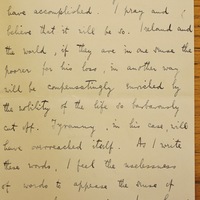 have accomplished. I pray and I
believe that it will be so. Ireland and
the world, if they are in one sense the
poorer for his loss, in another way
will be compensatingly enriched by
the nobility of the life so barbarously
cut off. Tyranny, in his case, will
have overreached itself. As I write
these words, I feel the uselessness
of words to appease the sense of